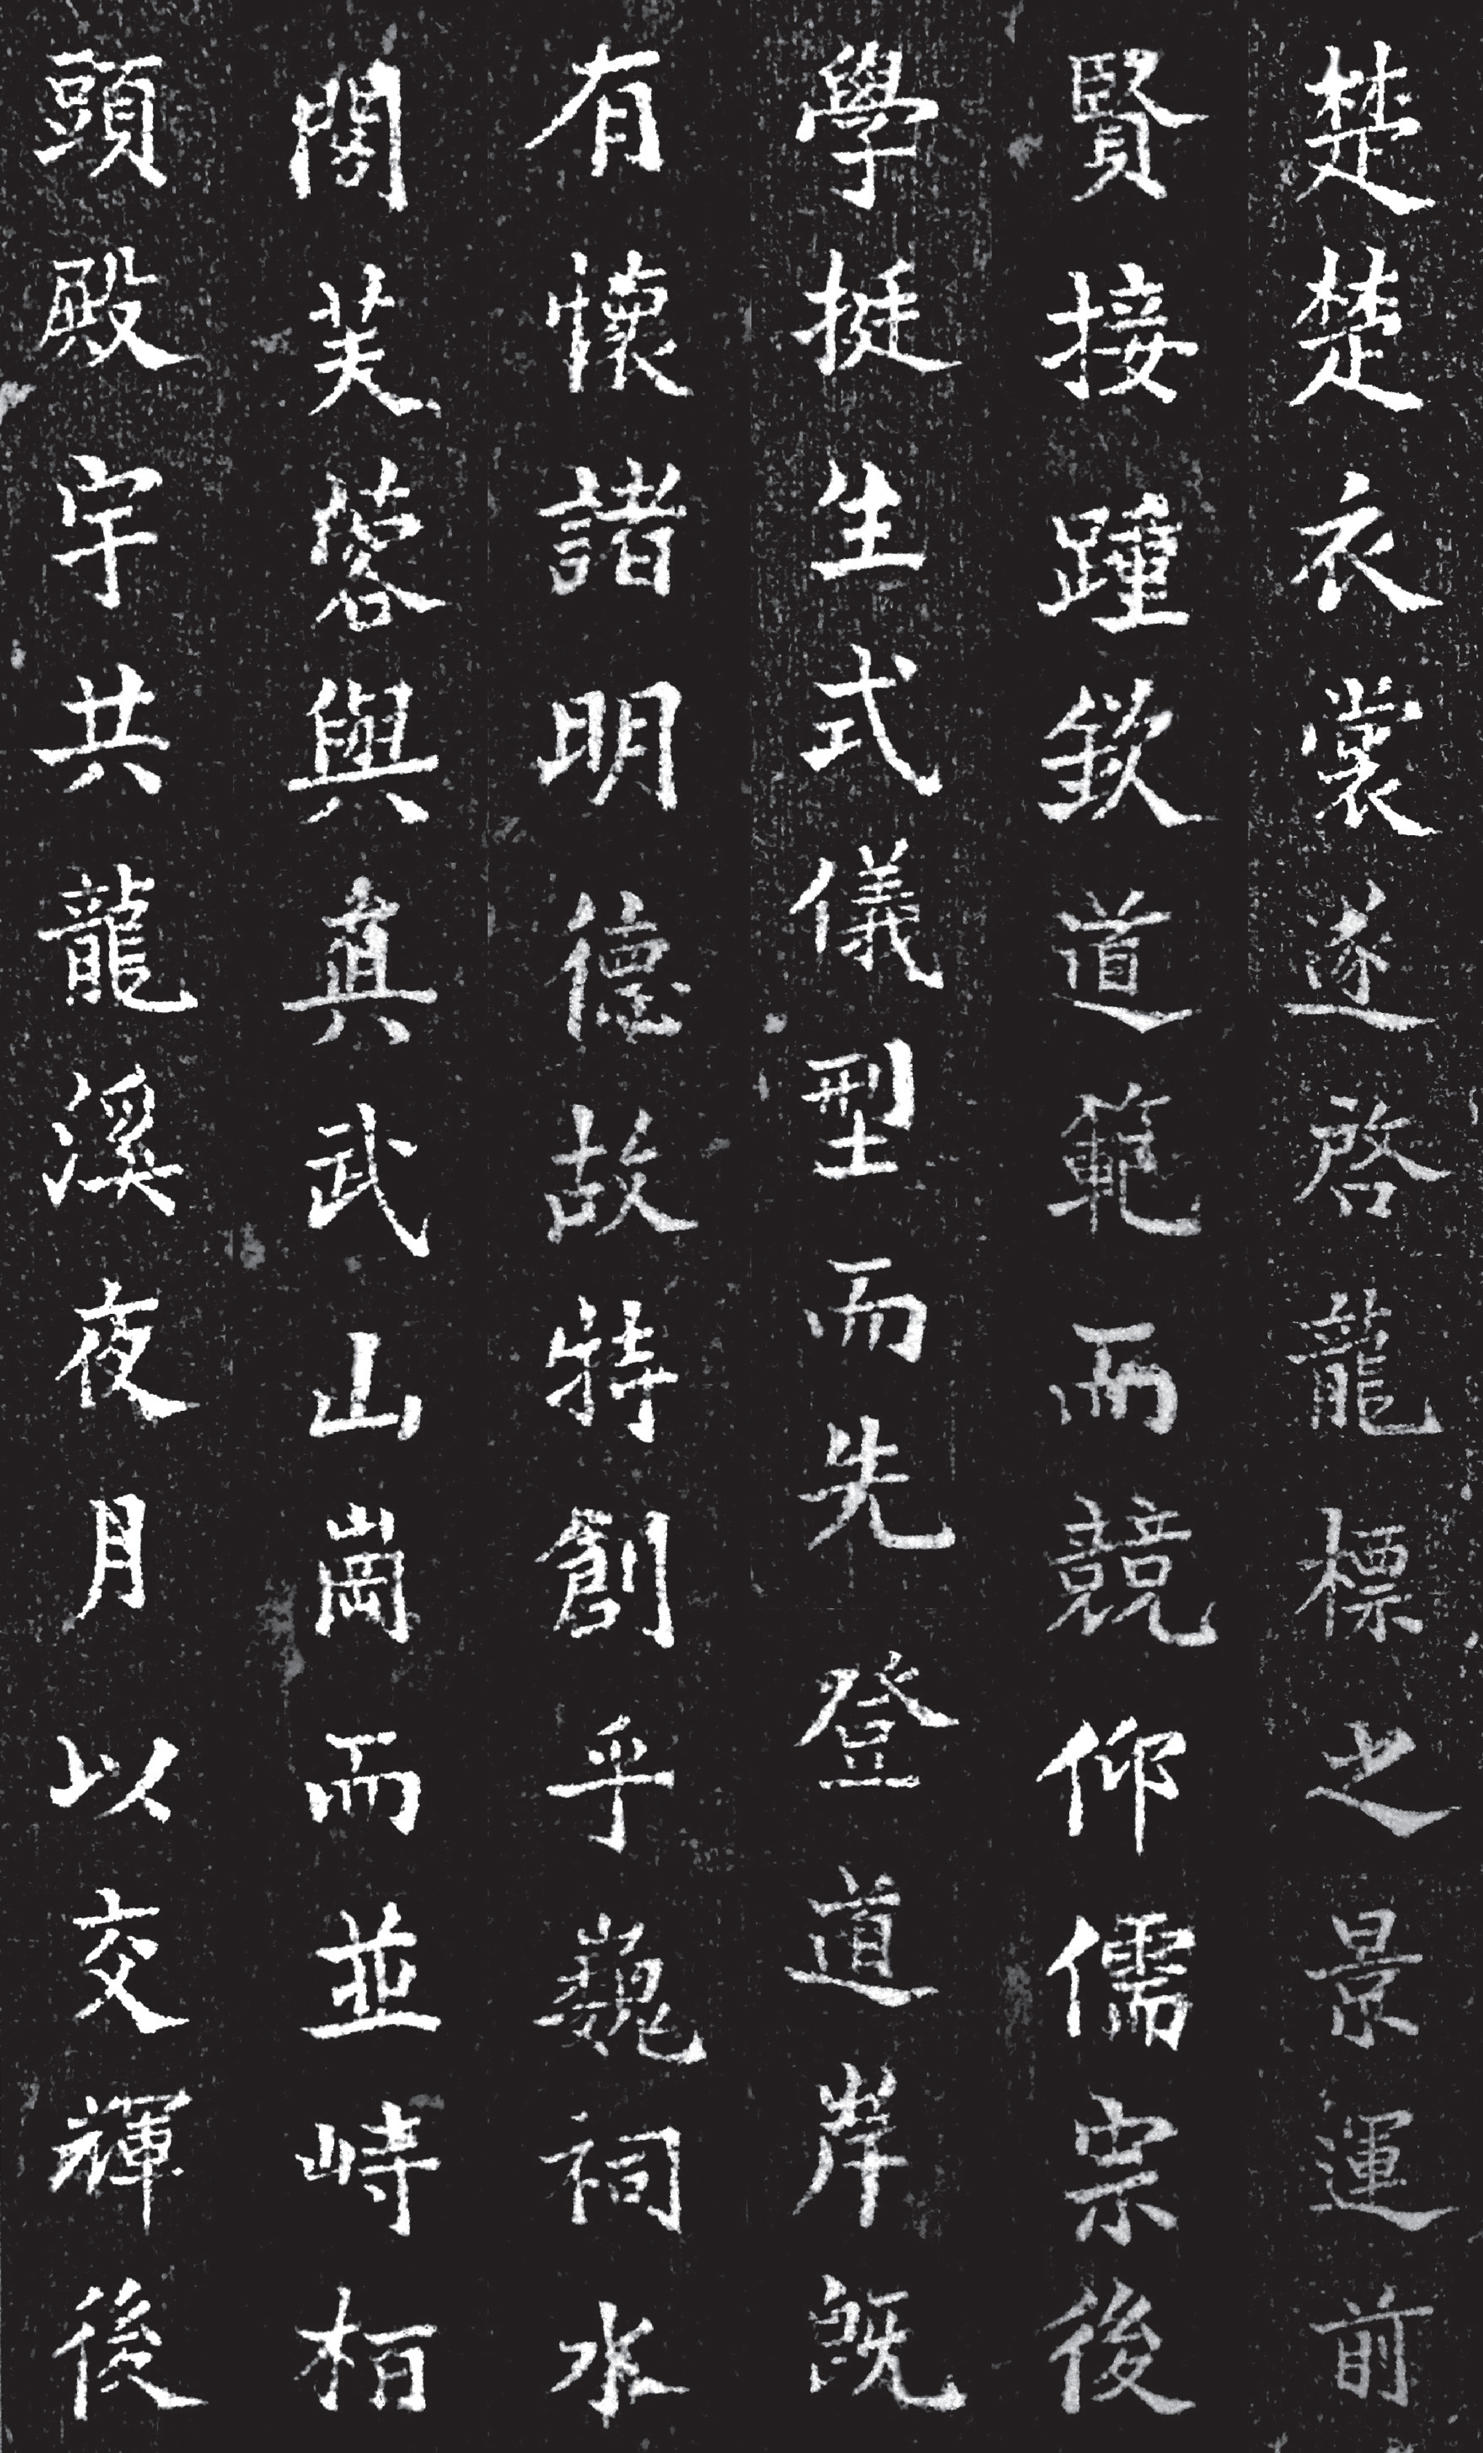 楚楚衣裳遂啓龍標之景運前
賢接踵欽道範而競仰儒宗後
學挺生式儀型而先登道岸既
有懷諸明德故特創乎巍祠水
閣芙蓉與真武山崗而並峙栢
頭殿宇共龍溪夜月以交輝後